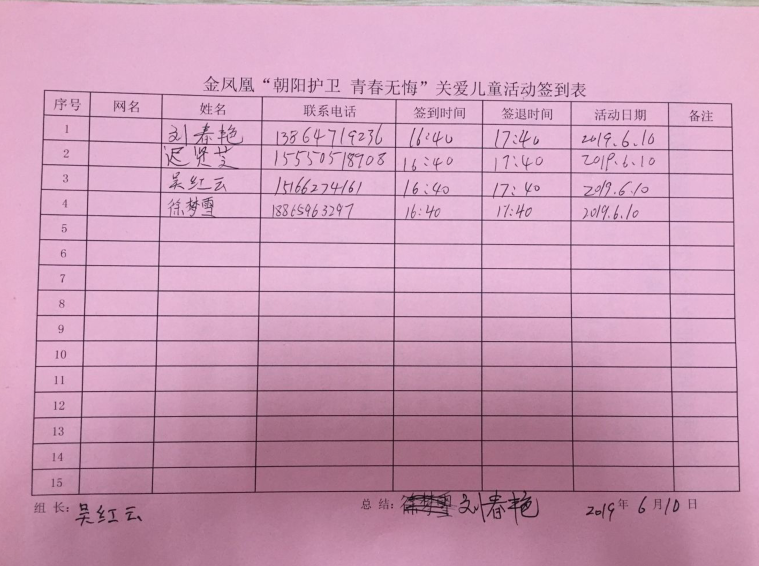 金凤凰“朝阳护卫 青春无悔”关爱儿童活动签到表
序号 网名 姓名 联系电话 签到时间 签退时间 活动日期 备注
1 刘春艳 13864719236 16:40 17:40 2019.6.10
2 迟贤芝 15550518908 16:40 17:40 2019.6.10
3 吴红云 15166274161 16:40 17:40 2019.6.10
4 徐梦雪 18865963297 16:40 17:40 2019.6.10
5
6
7
8
9
10
11
12
13
14
15
组 长: 吴红云 总 结: 徐梦雪 刘春艳 2019 年 6 月 10 日